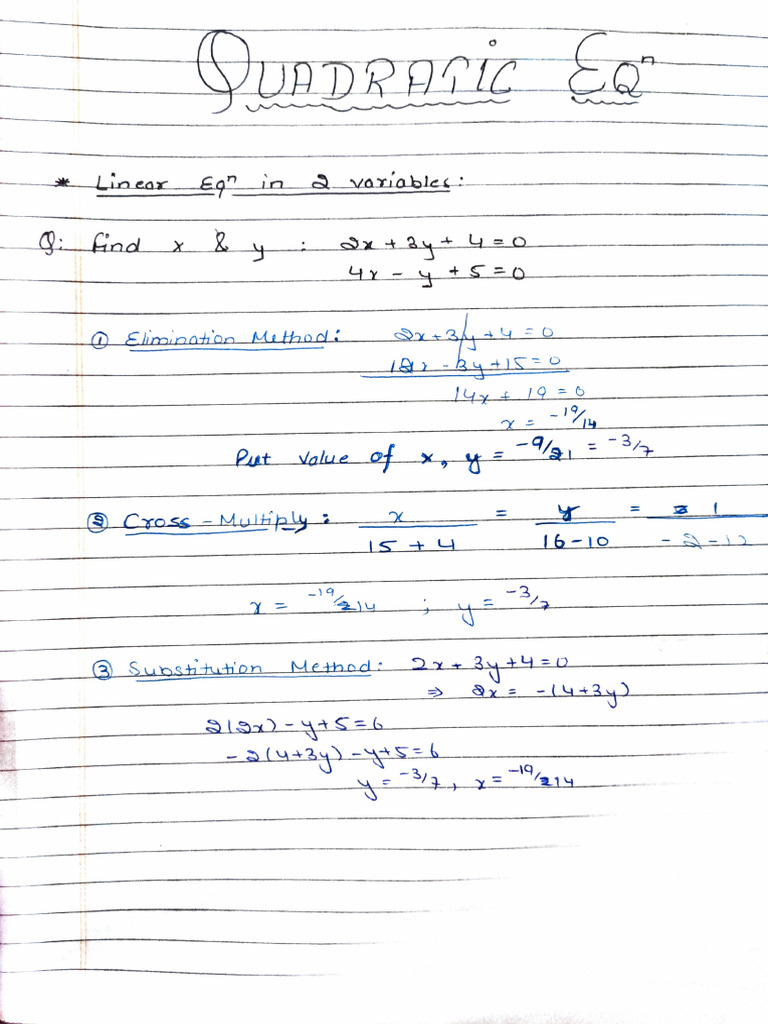 QUADRATIC EQⁿ
* Linear Eqⁿ in 2 variables:
Q: find x & y : 2x + 3y + 4 = 0
4x - y + 5 = 0
① Elimination Method: 2x + 3y + 4 = 0
12x - 3y + 15 = 0
14x + 19 = 0
x = -19/14
Put value of x, y = -9/21 = -3/7
② Cross-Multiply: x/15+4 = y/16-10 = 1/-2-12
x = -19/14 ; y = -3/7
③ Substitution Method: 2x + 3y + 4 = 0
⇒ 2x = -(4+3y)
2(2x) - y + 5 = 6
-2(4+3y) - y + 5 = 6
y = -3/7, x = -19/14